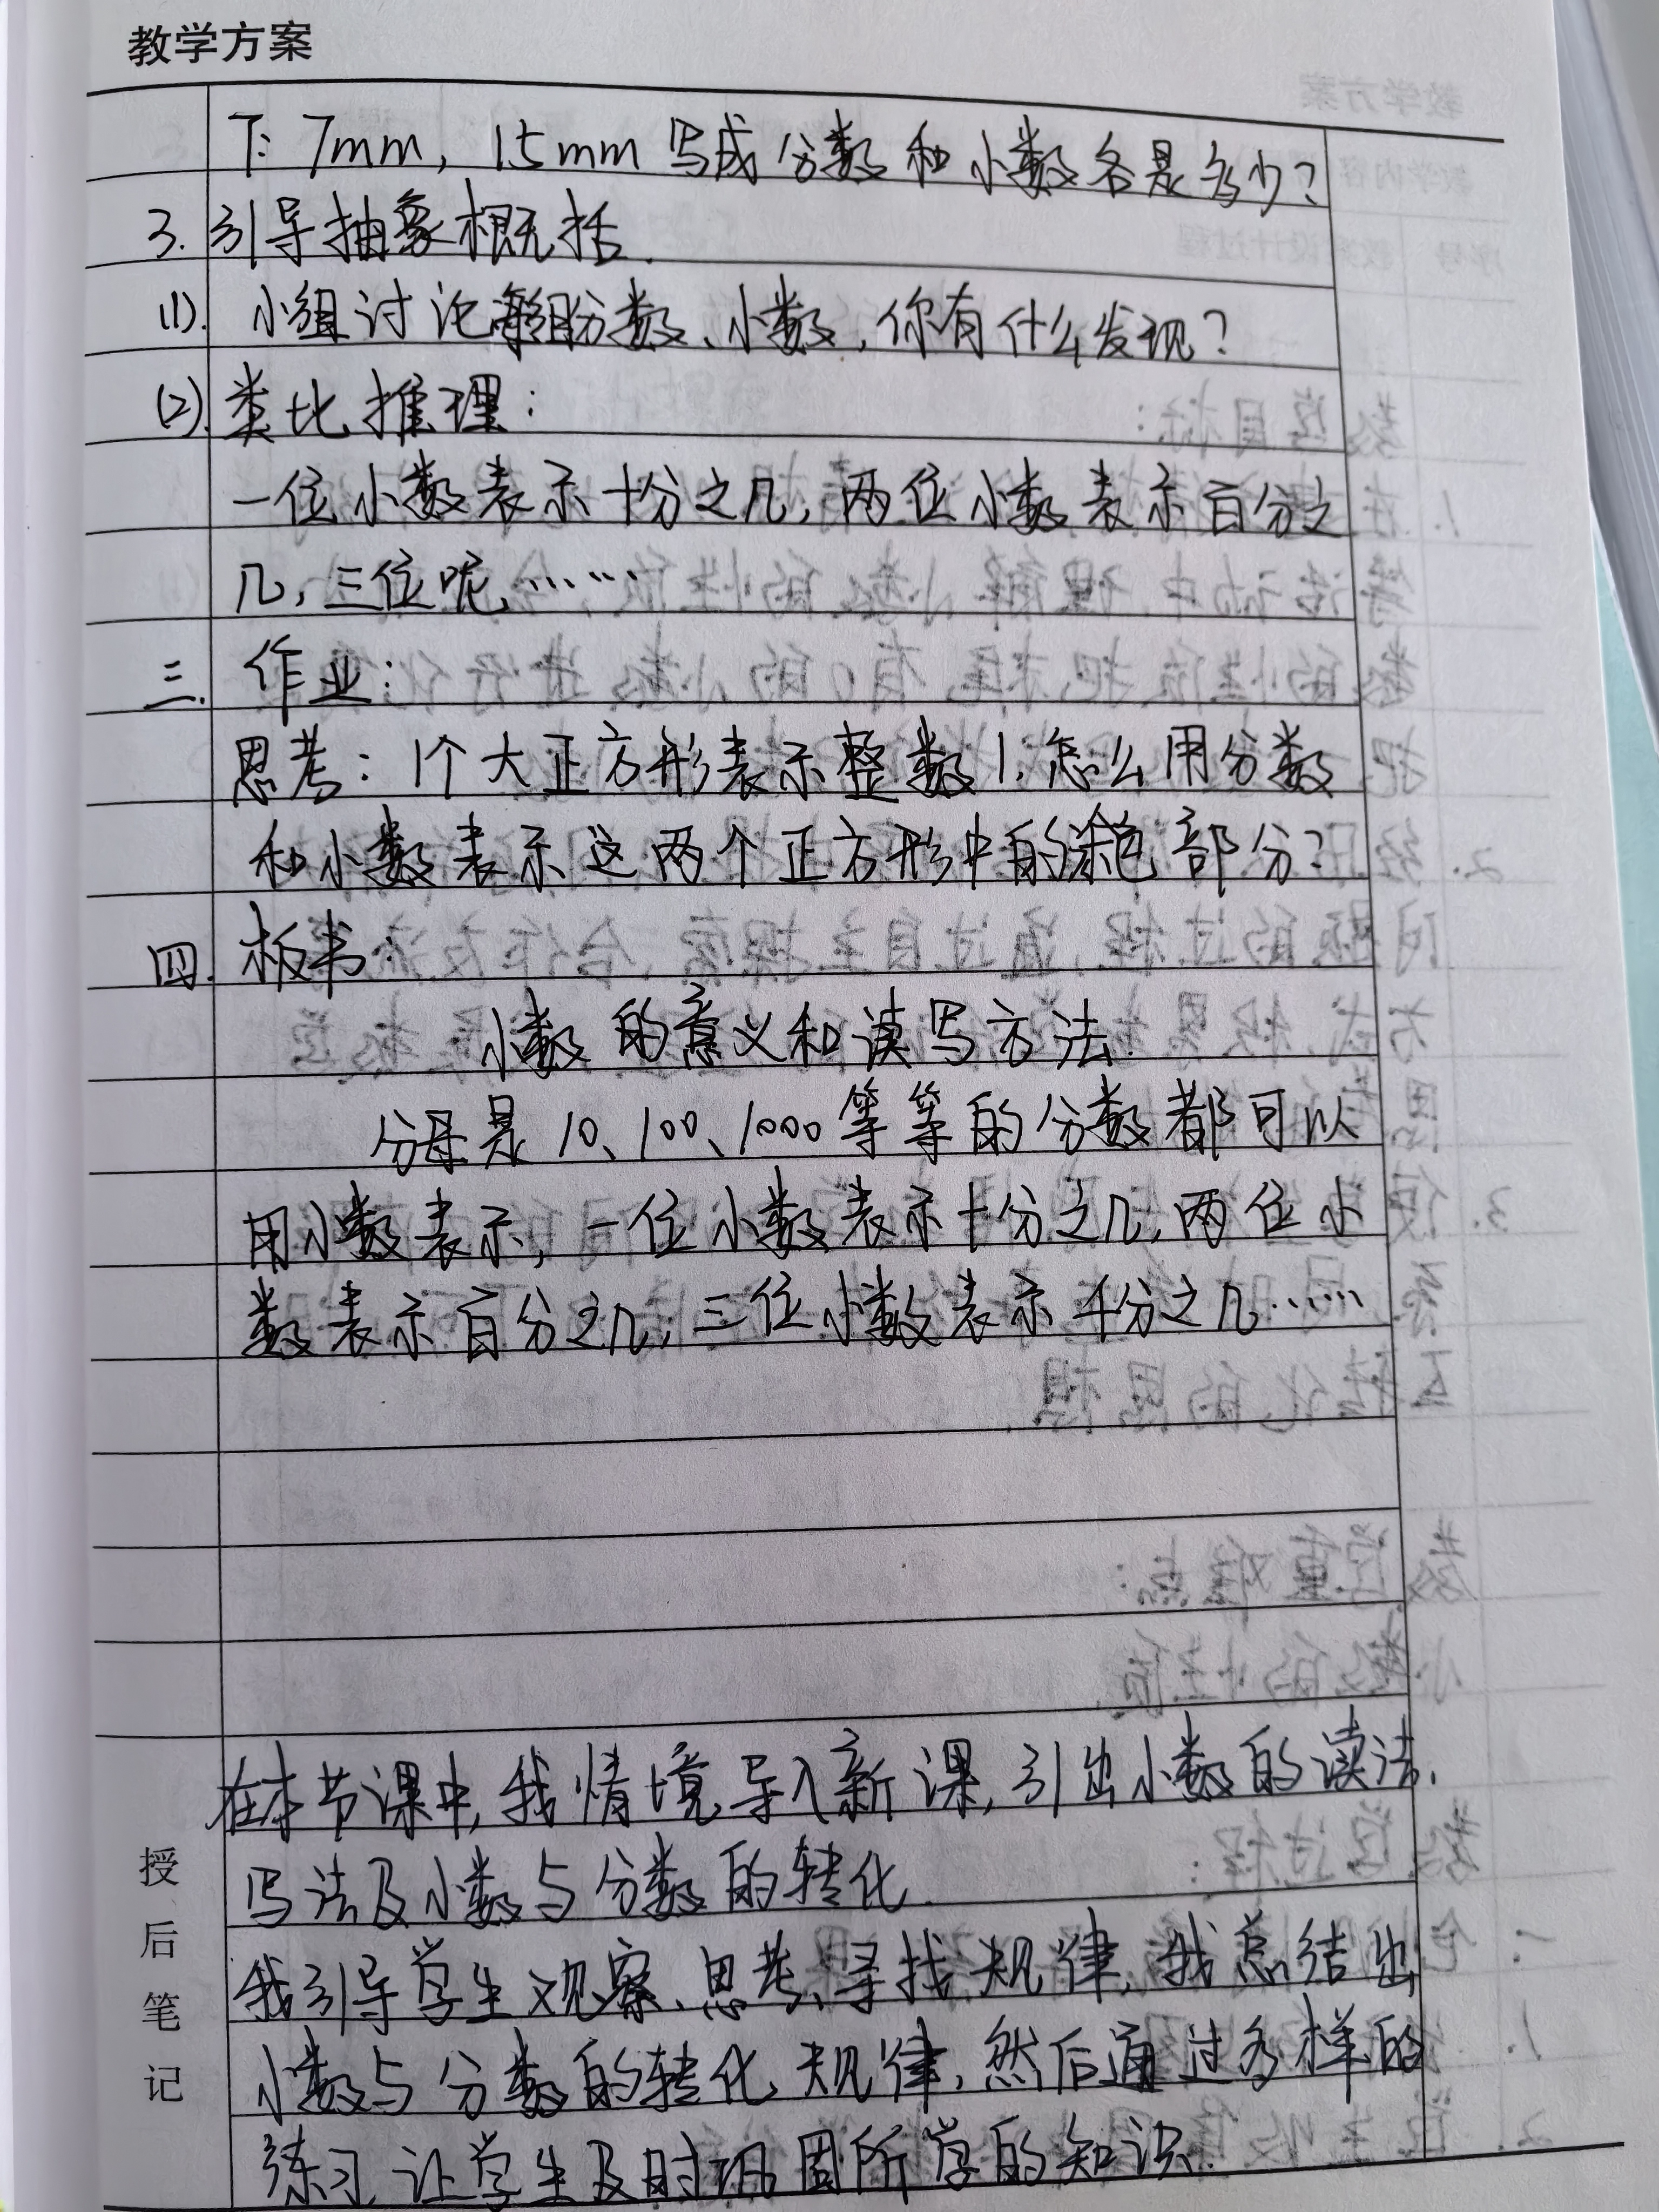 教学方案
下: 7mm, 15mm 写成分数和小数各是多少?
3. 引导抽象概括.
(1). 小组讨论每组分数、小数, 你有什么发现?
(2). 类比推理:
一位小数表示十分之几, 两位小数表示百分之
几, 三位呢, ……
三. 作业:
思考: 1个大正方形表示整数1, 怎么用分数
和小数表示这两个正方形中的涂色部分?
四. 板书:
小数的意义和读写方法.
分母是10、100、1000等等的分数都可以
用小数表示, 一位小数表示十分之几, 两位小
数表示百分之几, 三位小数表示千分之几……
授后笔记
在本节课中, 我情境导入新课, 引出小数的读法,
写法及小数与分数的转化.
我引导学生观察、思考、寻找规律, 我总结出
小数与分数的转化规律, 然后通过多样的
练习, 让学生及时巩固所学的知识.